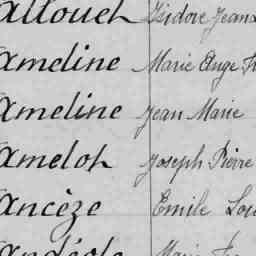 allouet Isidore Jean
ameline Marie Ange
ameline Jean Marie
amelot Joseph Pierre
ancèze Emile